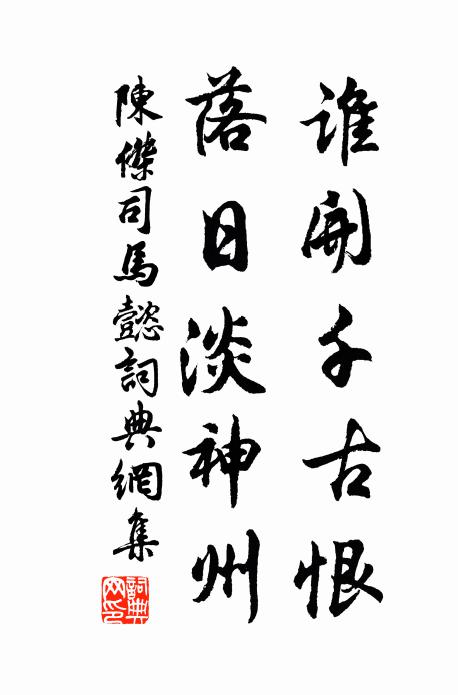 誰開千古恨
落日淡神州
陳傑司馬懿詞典網集
詞典網印